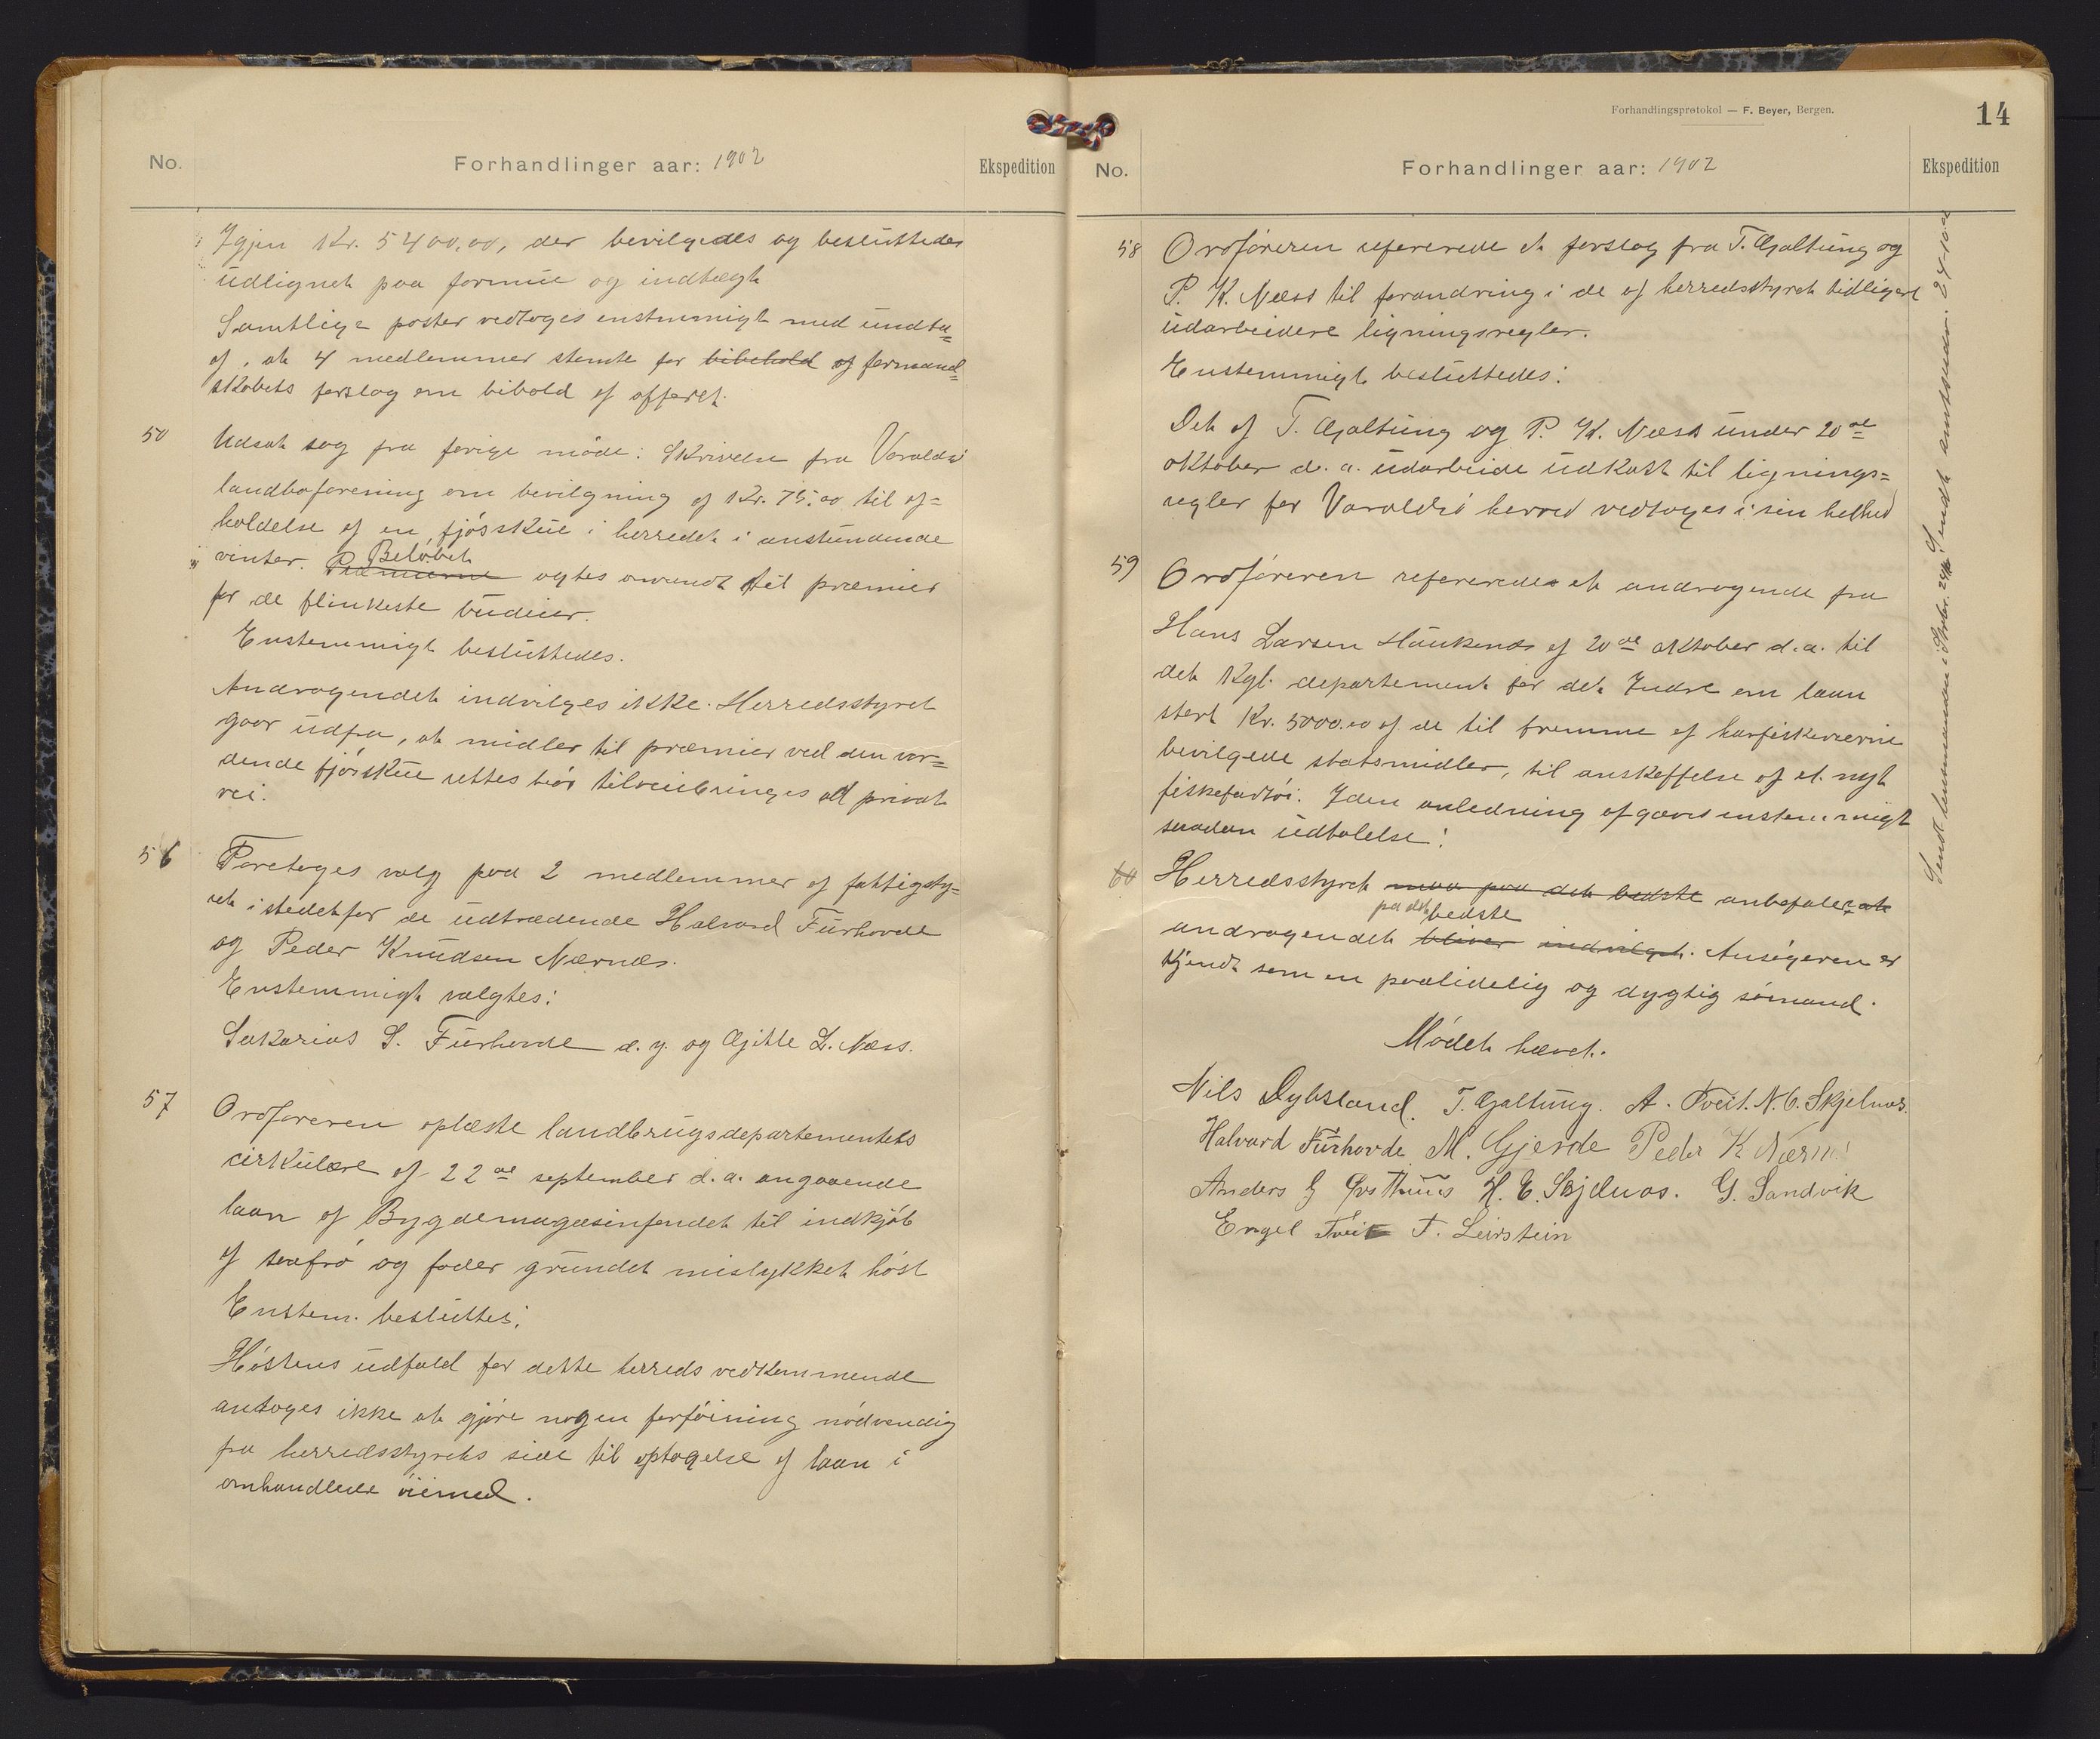 No.
Forhandlinger aar: 1902
Ekspedition
Igjen Kr. 5400,00, der bevilgedes og besluttedes
udlignet paa formue og indtægt
Samtlige poster vedtoges enstemmigt med undta=
af, at 4 medlemmer stemte for bibehold af formand=
skabets forslag om bibold af offeret.
50 Udsat sag fra forrige møde: Skrivelse fra Varaldsø
landboforening om bevilgning af Kr. 75.00 til af=
holdelse af en fjøsskue i herredet i anstundende
Beløbet
vinter. Præmierne agtes anvendt til præmier
for de flinkeste budeier.
Enstemmigt besluttedes.
Andragendet indvilges ikke. Herredsstyret
gaar udfra, at midler til præmier ved den vor=
dende fjøsskue rettes bør tilveiebringes ad privat
vei.
56 Foretoges valg paa 2 medlemmer af fattigsty=
ret istedetfor de udtrædende Halvard Furhovde
og Peder Knudsen Nærnæs.
Enstemmigt valgtes:
Sakarias S. Furhovde d.y. og Gitle L. Næss.
57 Ordføreren oplæste landbrugsdepartementets
cirkulære af 22de september d.a. angaaende
laan af Bygdemagasinfondet til indkjøb
af saafrø og foder grundet mislykket høst
Enstem. besluttes:
Høstens udfald for dette herreds vedkommende
antoges ikke at gjøre nogen forføining nødvendig
fra herredsstyrets side til optagelse af laan i
omhandlede øiemed.
Forhandlingsprotokol — F. Beyer, Bergen.
14
No.
Forhandlinger aar: 1902
Ekspedition
58 Ordføreren refererede et forslag fra T. Gjaltung og
P. K. Næss til forandring i de af herredsstyret tidligere
udarbeidere ligningsregler.
Enstemmigt besluttedes:
Det af T. Gjaltung og P. K. Næss under 20de
oktober d. a. udarbeide udkast til lignings=
regler for Varaldsø herred vedtoges i sin helhed
59 Ordføreren refererede et andragende fra
Hans Larsen Haukenæs af 20de oktober d.a. til
det Kgl. departement for det Indre om laan
stort Kr. 5000.00 af de til fremme af havfiskerierne
bevilgede statsmidler, til anskaffelse af et nyt
fiskefartøi. Iden anledning afgaves enstemmigt
saadan udtalelse:
60 Herredsstyret maa paa det bedste anbefaler at
paa det bedste
andragendet bliver indvilget. Ansøgeren er
kjendt som en paalidelig og dygtig sømand.
Mødet hævet.
Nils Dybsland. T. Gjaltung. A. Tveit. N. C. Skjelnæs.
Halvard Furhovde M. Gjerde Peder K Nærnes
Anders G Østhuus H. E. Skjelnæs. G. Sandvik
Engel Tveit T. Leirstein